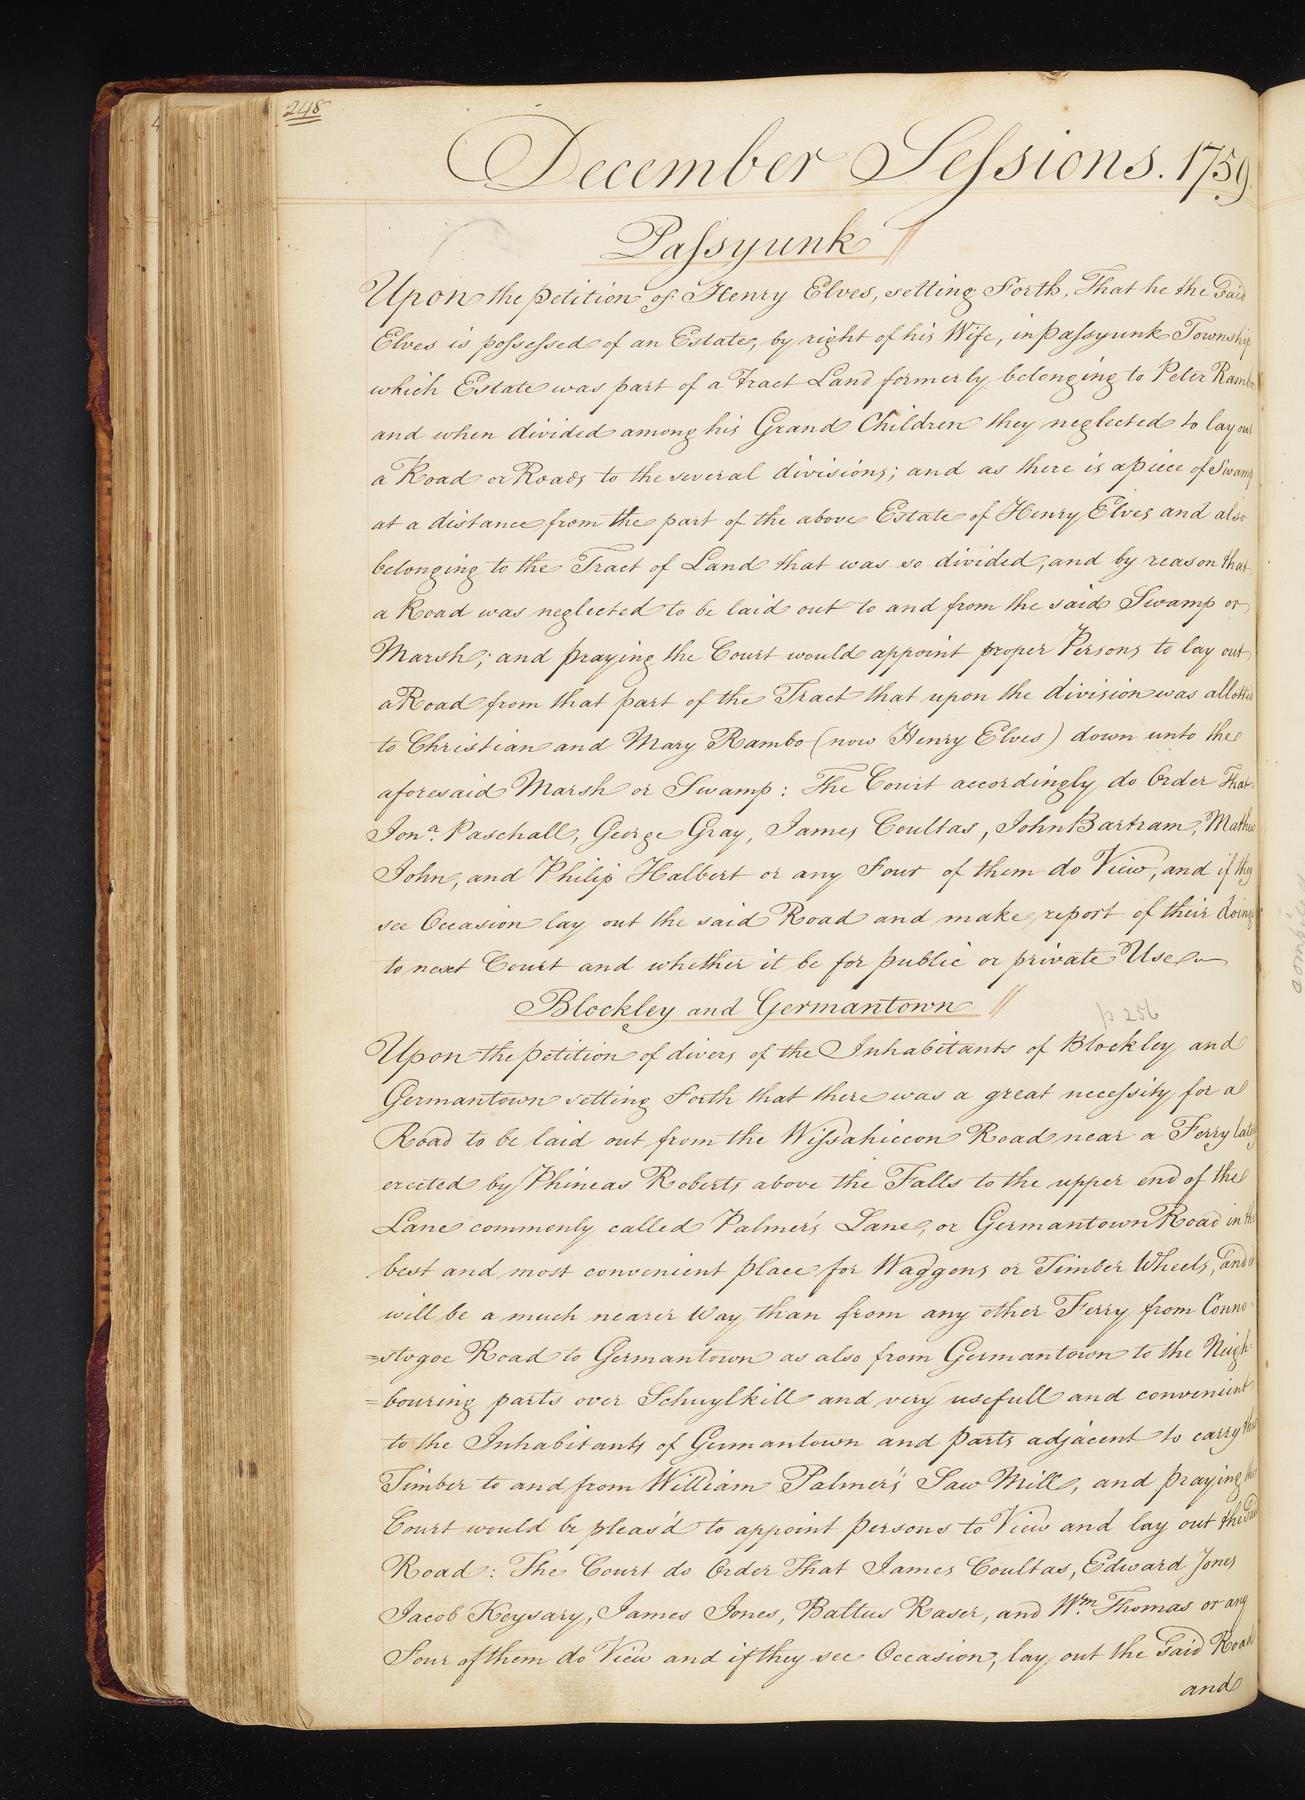 248
December Sessions. 1759
Passyunk
Upon the petition of Henry Elves, setting Forth, That he the Said
Elves is possessed of an Estate, by right of his Wife, in passyunk Township
which Estate was part of a Tract Land formerly belonging to Peter Rambo
and when divided among his Grand Children they neglected to lay out
a Road or Roads to the several divisions; and as there is a piece of Swamp
at a distance from the part of the above Estate of Henry Elves and also
belonging to the Tract of Land that was so divided, and by reason that
a Road was neglected to be laid out to and from the said Swamp or
Marsh; and praying the Court would appoint proper Persons to lay out
a Road from that part of the Tract that upon the division was allotted
to Christian and Mary Rambo (now Henry Elves) down unto the
aforesaid Marsh or Swamp: The Court accordingly do Order That
Jona. Paschall, George Gray, James Coultas, John Bartram, Mathew
John, and Philip Halbert or any Four of them do View, and if they
see Occasion lay out the said Road and make report of their doings
to next Court and whether it be for public or private Use
Blockley and Germantown
p 256
Upon the petition of divers of the Inhabitants of Blockley and
Germantown setting Forth that there was a great necessity for a
Road to be laid out from the Wissahiccon Road near a Ferry lately
erected by Phineas Roberts above the Falls to the upper end of the
Lane commonly called Palmer's Lane, or Germantown Road in the
best and most convenient place for Waggons or Timber Wheels, and it
will be a much nearer Way than from any other Ferry from Conno-
=stogoe Road to Germantown as also from Germantown to the Neigh-
=bouring parts over Schuylkill and very usefull and convenient
to the Inhabitants of Germantown and parts adjacent to carry their
Timber to and from William Palmer's Saw Mill, and praying the
Court would be pleas'd to appoint persons to View and lay out the Said
Road: The Court do Order That James Coultas, Edward Jones
Jacob Keysary, James Jones, Baltus Raser, and Wm. Thomas or any
Four of them do View and if they see Occasion, lay out the Said Road
and